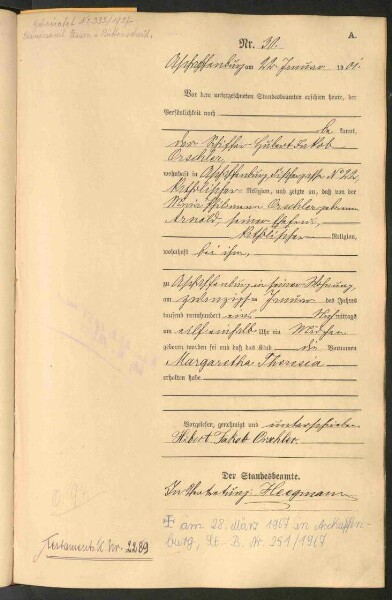 A.
Nr. 30.
Aschaffenburg am 22. Januar 1901.
Vor dem unterzeichneten Standesbeamten erschien heute, der
Persönlichkeit nach
be kannt,
der Schiffer Hubert Jakob
Orschler,
wohnhaft in Aschaffenburg, Fischergasse No 22,
katholischer Religion, und zeigte an, daß von der
Maria Philomena Orschler, geborenen
Arnold, seiner Ehefrau,
katholischer Religion,
wohnhaft bei ihm,
zu Aschaffenburg in seiner Wohnung,
am zwanzigsten Januar des Jahres
tausend neunhundert eins Nachmittags
um elfeinhalb Uhr ein Mädchen
geboren worden sei und daß das Kind die Vornamen
Margaretha Theresia
erhalten habe
Vorgelesen, genehmigt und unterschrieben
Hubert Jakob Orschler.
Der Standesbeamte.
In Vertretung: Heegmann
am 28. März 1967 in Aschaffen-
burg, St.-B. Nr. 251/1967
Testaments K Nr. 2289